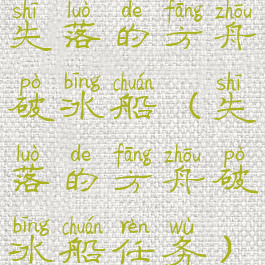 shī luò de fāng zhōu
失落的方舟
pò bīng chuán shī
破冰船（失
luò de fāng zhōu pò
落的方舟破
bīng chuán rèn wù
冰船任务）